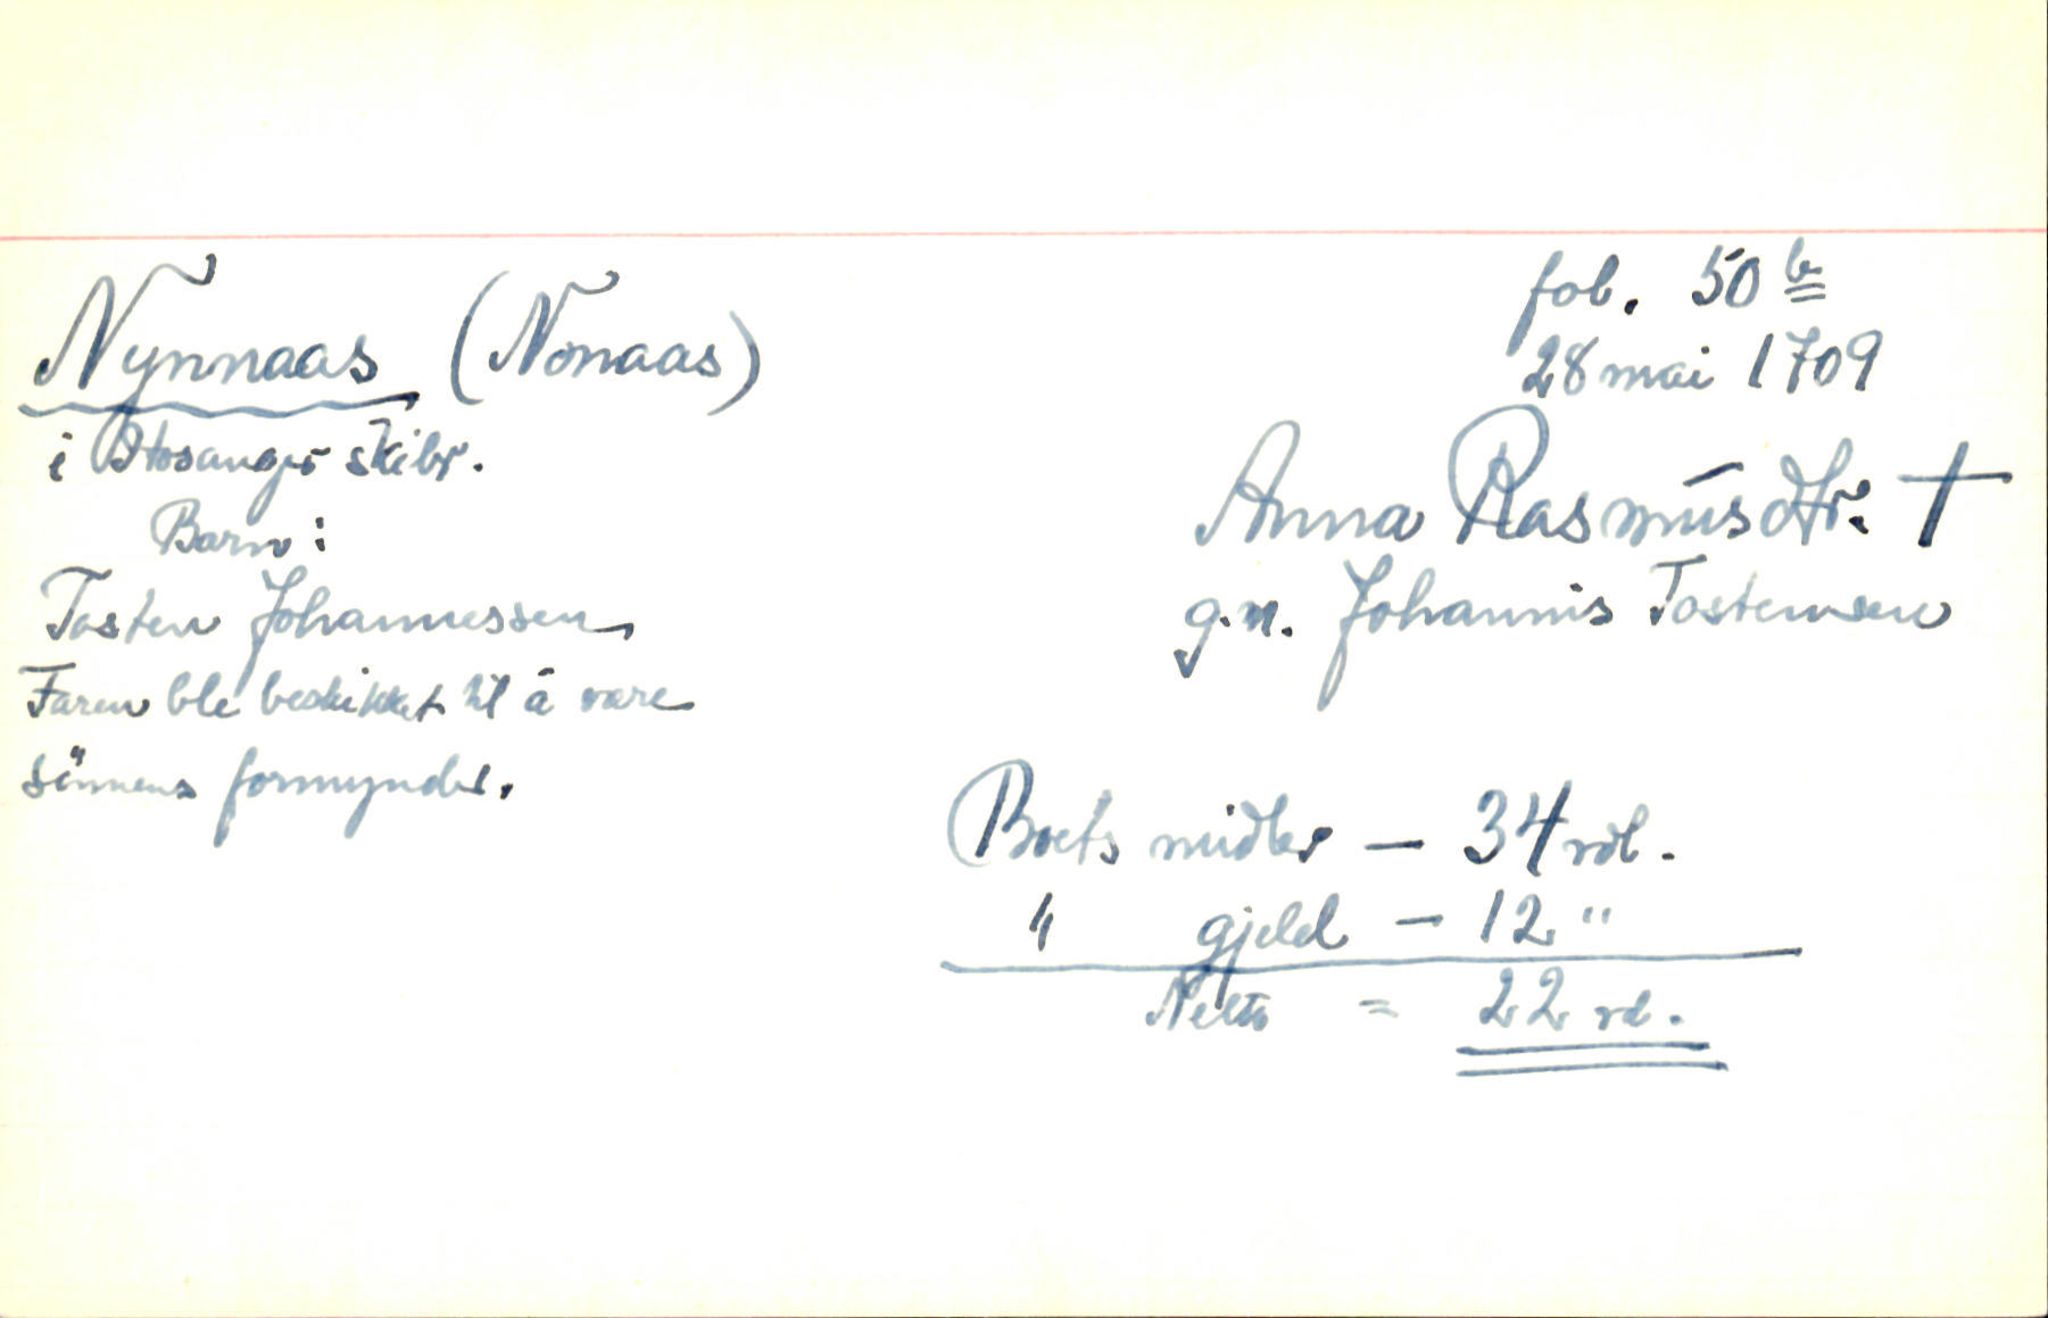 Nynnaas (Nonaas)
i Hosanger skibr.
Barn:
Tosten Johannessen
Faren ble beskikket til å være
sönnens formynder.
fol. 50 b
28 mai 1709
Anna Rasmusdtr. †
g.m. Johannis Tostensen
Boets midler — 34 rdl.
" gjeld — 12 "
Netto = 22 rd.